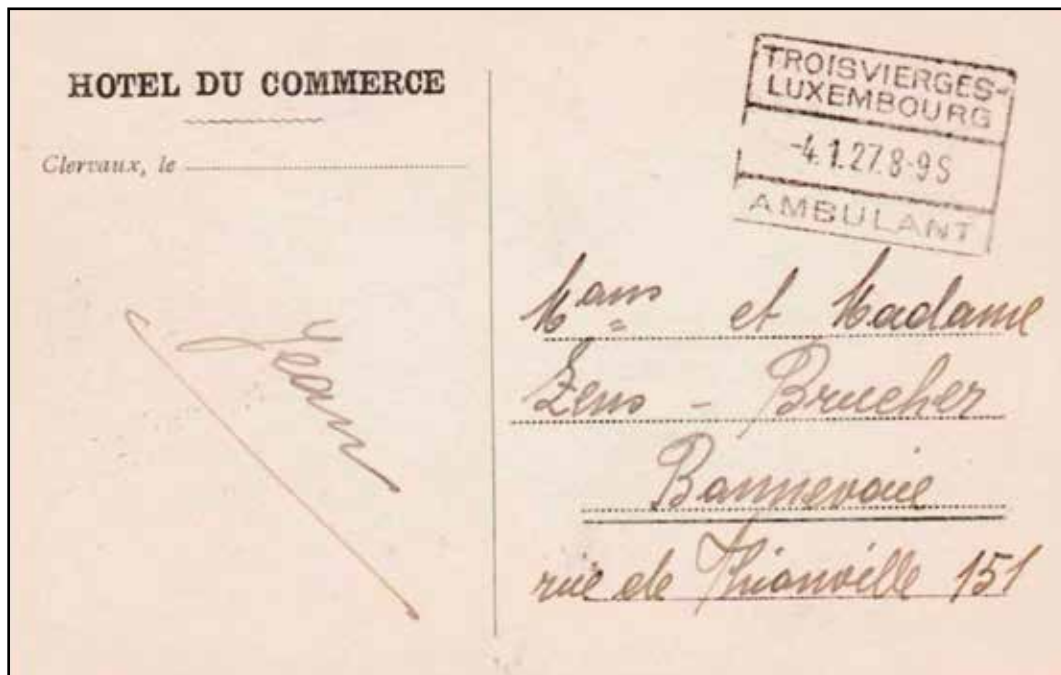 HOTEL DU COMMERCE
Clervaux, le
Jean
TROISVIERGES-
LUXEMBOURG
-4.1.27.8-9S
AMBULANT
et Madame
Zens - Brucher
Bonnevoie
rue de Thionville 151